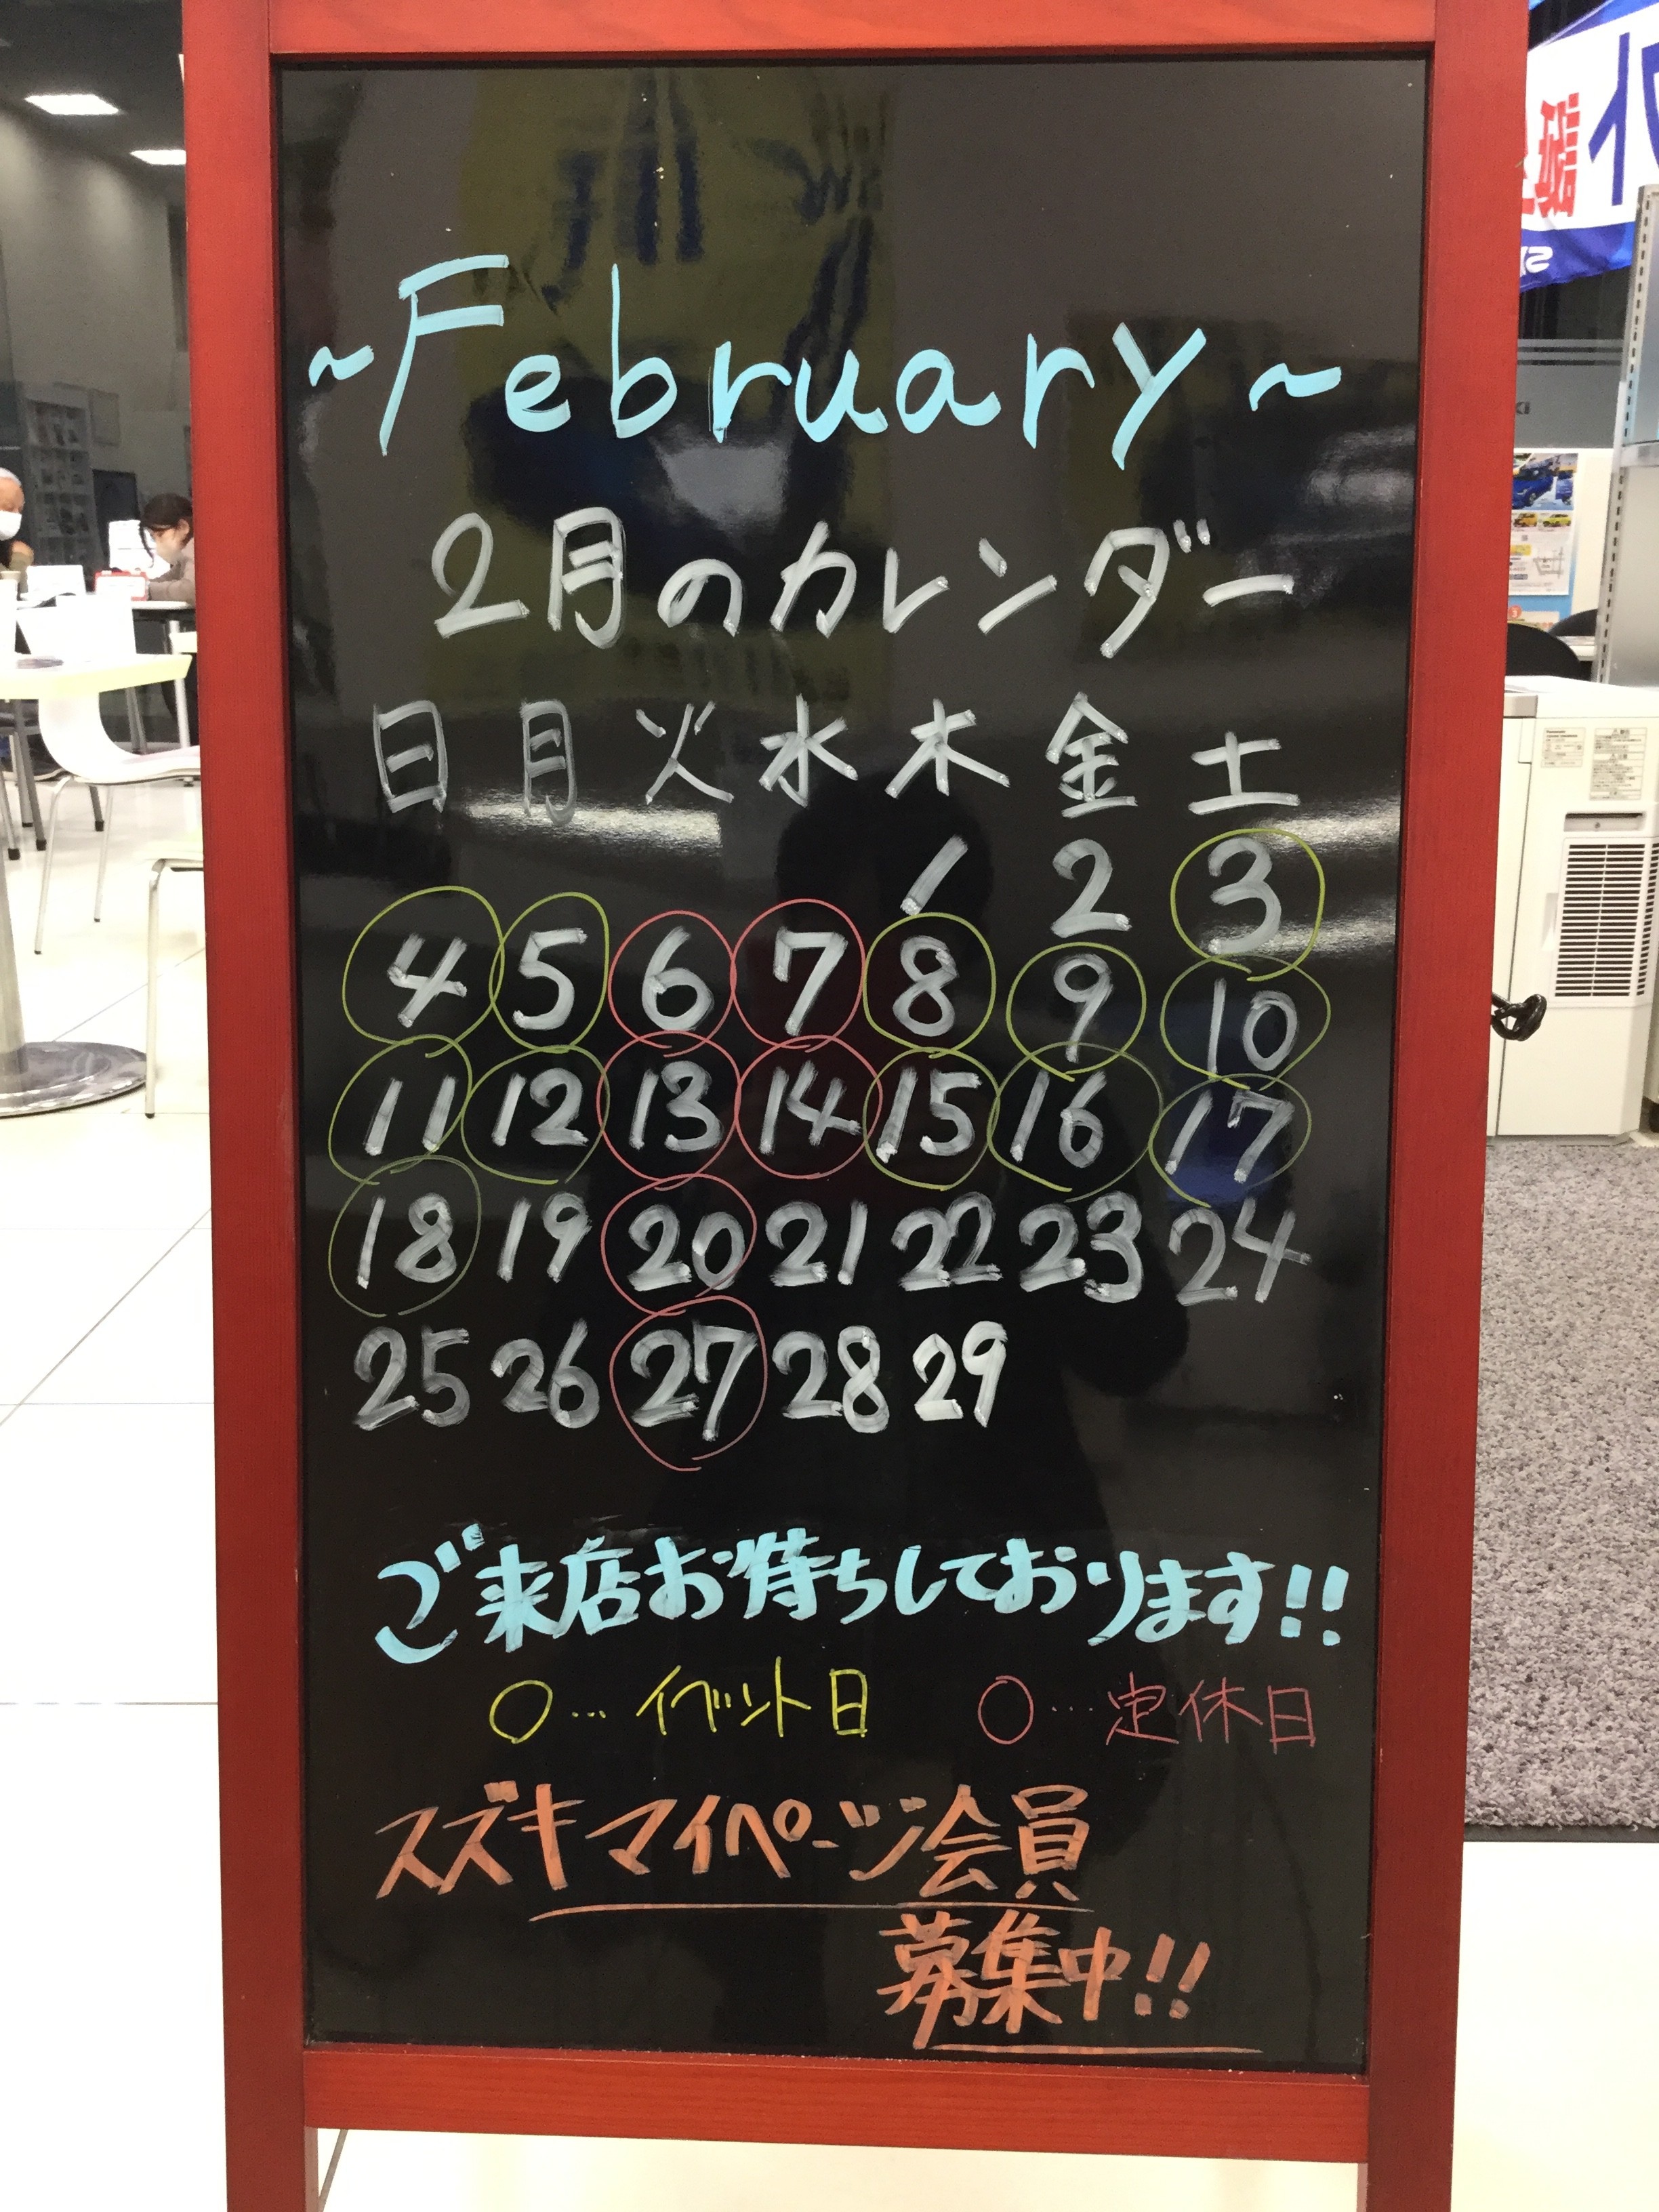 ~February~
2月のカレンダー
日 月 火 水 木 金 土
1 2 3
4 5 6 7 8 9 10
11 12 13 14 15 16 17
18 19 20 21 22 23 24
25 26 27 28 29
ご来店お待ちしております!!
○…イベント日 ○…定休日
スズキマイページ会員
募集中!!